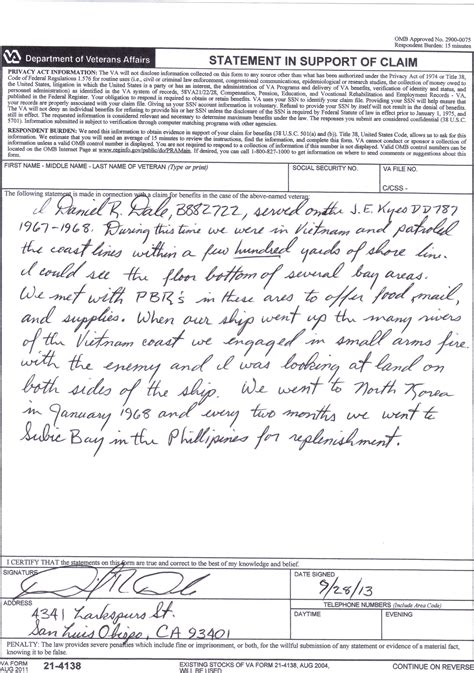 OMB Approved No. 2900-0075
Respondent Burden: 15 minutes
VA Department of Veterans Affairs
STATEMENT IN SUPPORT OF CLAIM
PRIVACY ACT INFORMATION: The VA will not disclose information collected on this form to any source other than what has been authorized under the Privacy Act of 1974 or Title 38,
Code of Federal Regulations 1.576 for routine uses (i.e., civil or criminal law enforcement, congressional communications, epidemiological or research studies, the collection of money owed to
the United States, litigation in which the United States is a party or has an interest, the administration of VA Programs and delivery of VA benefits, verification of identity and status, and
personnel administration) as identified in the VA system of records, 58VA21/22/28, Compensation, Pension, Education, and Vocational Rehabilitation and Employment Records - VA,
published in the Federal Register. Your obligation to respond is required to obtain or retain benefits. VA uses your SSN to identify your claim file. Providing your SSN will help ensure that
your records are properly associated with your claim file. Giving us your SSN account information is voluntary. Refusal to provide your SSN by itself will not result in the denial of benefits. The
VA will not deny an individual benefits for refusing to provide his or her SSN unless the disclosure of the SSN is required by Federal Statute of law in effect prior to January 1, 1975, and
still in effect. The requested information is considered relevant and necessary to determine maximum benefits under the law. The responses you submit are considered confidential (38 U.S.C.
5701). Information submitted is subject to verification through computer matching programs with other agencies.
RESPONDENT BURDEN: We need this information to obtain evidence in support of your claim for benefits (38 U.S.C. 501(a) and (b)). Title 38, United States Code, allows us to ask for this
information. We estimate that you will need an average of 15 minutes to review the instructions, find the information, and complete this form. VA cannot conduct or sponsor a collection of
information unless a valid OMB control number is displayed. You are not required to respond to a collection of information if this number is not displayed. Valid OMB control numbers can be
located on the OMB Internet Page at www.reginfo.gov/public/do/PRAMain. If desired, you can call 1-800-827-1000 to get information on where to send comments or suggestions about this
form.
FIRST NAME - MIDDLE NAME - LAST NAME OF VETERAN (Type or print)
SOCIAL SECURITY NO.
VA FILE NO.
C/CSS -
The following statement is made in connection with a claim for benefits in the case of the above-named veteran:
I Daniel R. Dale, B882722, served on the J.E. Kyes DD787
1967-1968. During this time we were in Vietnam and patroled
the coast lines within a few hundred yards of shore line.
I could see the floor bottom of several bay areas.
We met with PBR's in these ares to offer food, mail,
and supplies. When our ship went up the many rivers
of the Vietnam coast we engaged in small arms fire
with the enemy and I was looking at land on
both sides of the ship. We went to North Korea
in January 1968 and every two months we went to
Subic Bay in the Phillipines for replenishment.
I CERTIFY THAT the statements on this form are true and correct to the best of my knowledge and belief.
SIGNATURE
DATE SIGNED
9/28/13
ADDRESS
TELEPHONE NUMBERS (Include Area Code)
4341 Larkspurs St.
DAYTIME
EVENING
San Luis Obispo, CA 93401
PENALTY: The law provides severe penalties which include fine or imprisonment, or both, for the willful submission of any statement or evidence of a material fact,
knowing it to be false.
VA FORM
AUG 2011
21-4138
EXISTING STOCKS OF VA FORM 21-4138, AUG 2004,
WILL BE USED
CONTINUE ON REVERSE